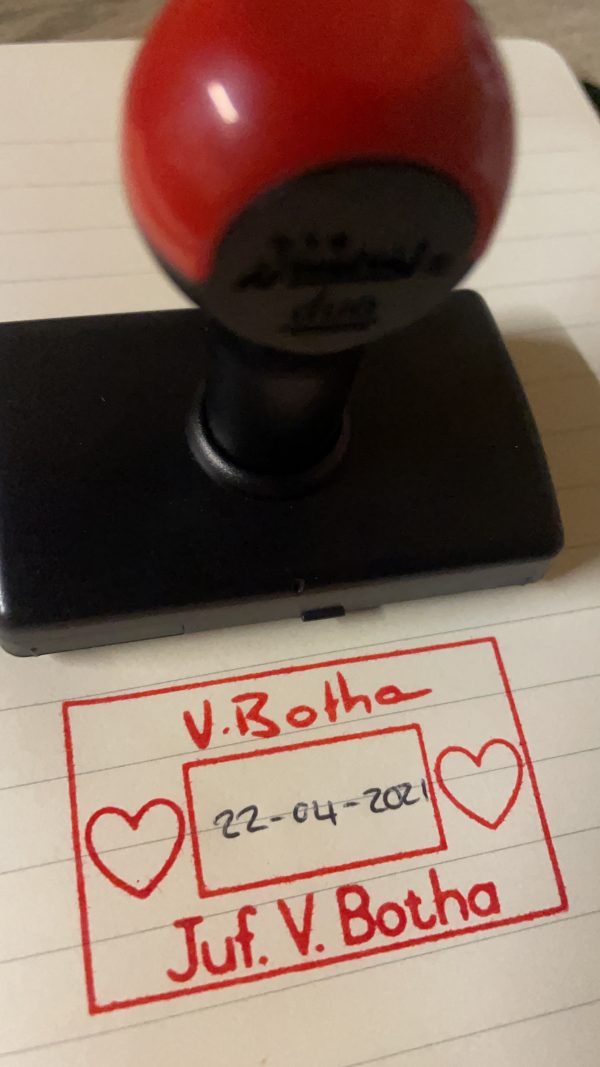 V.Botha
22-04-2021
Juf. V. Botha